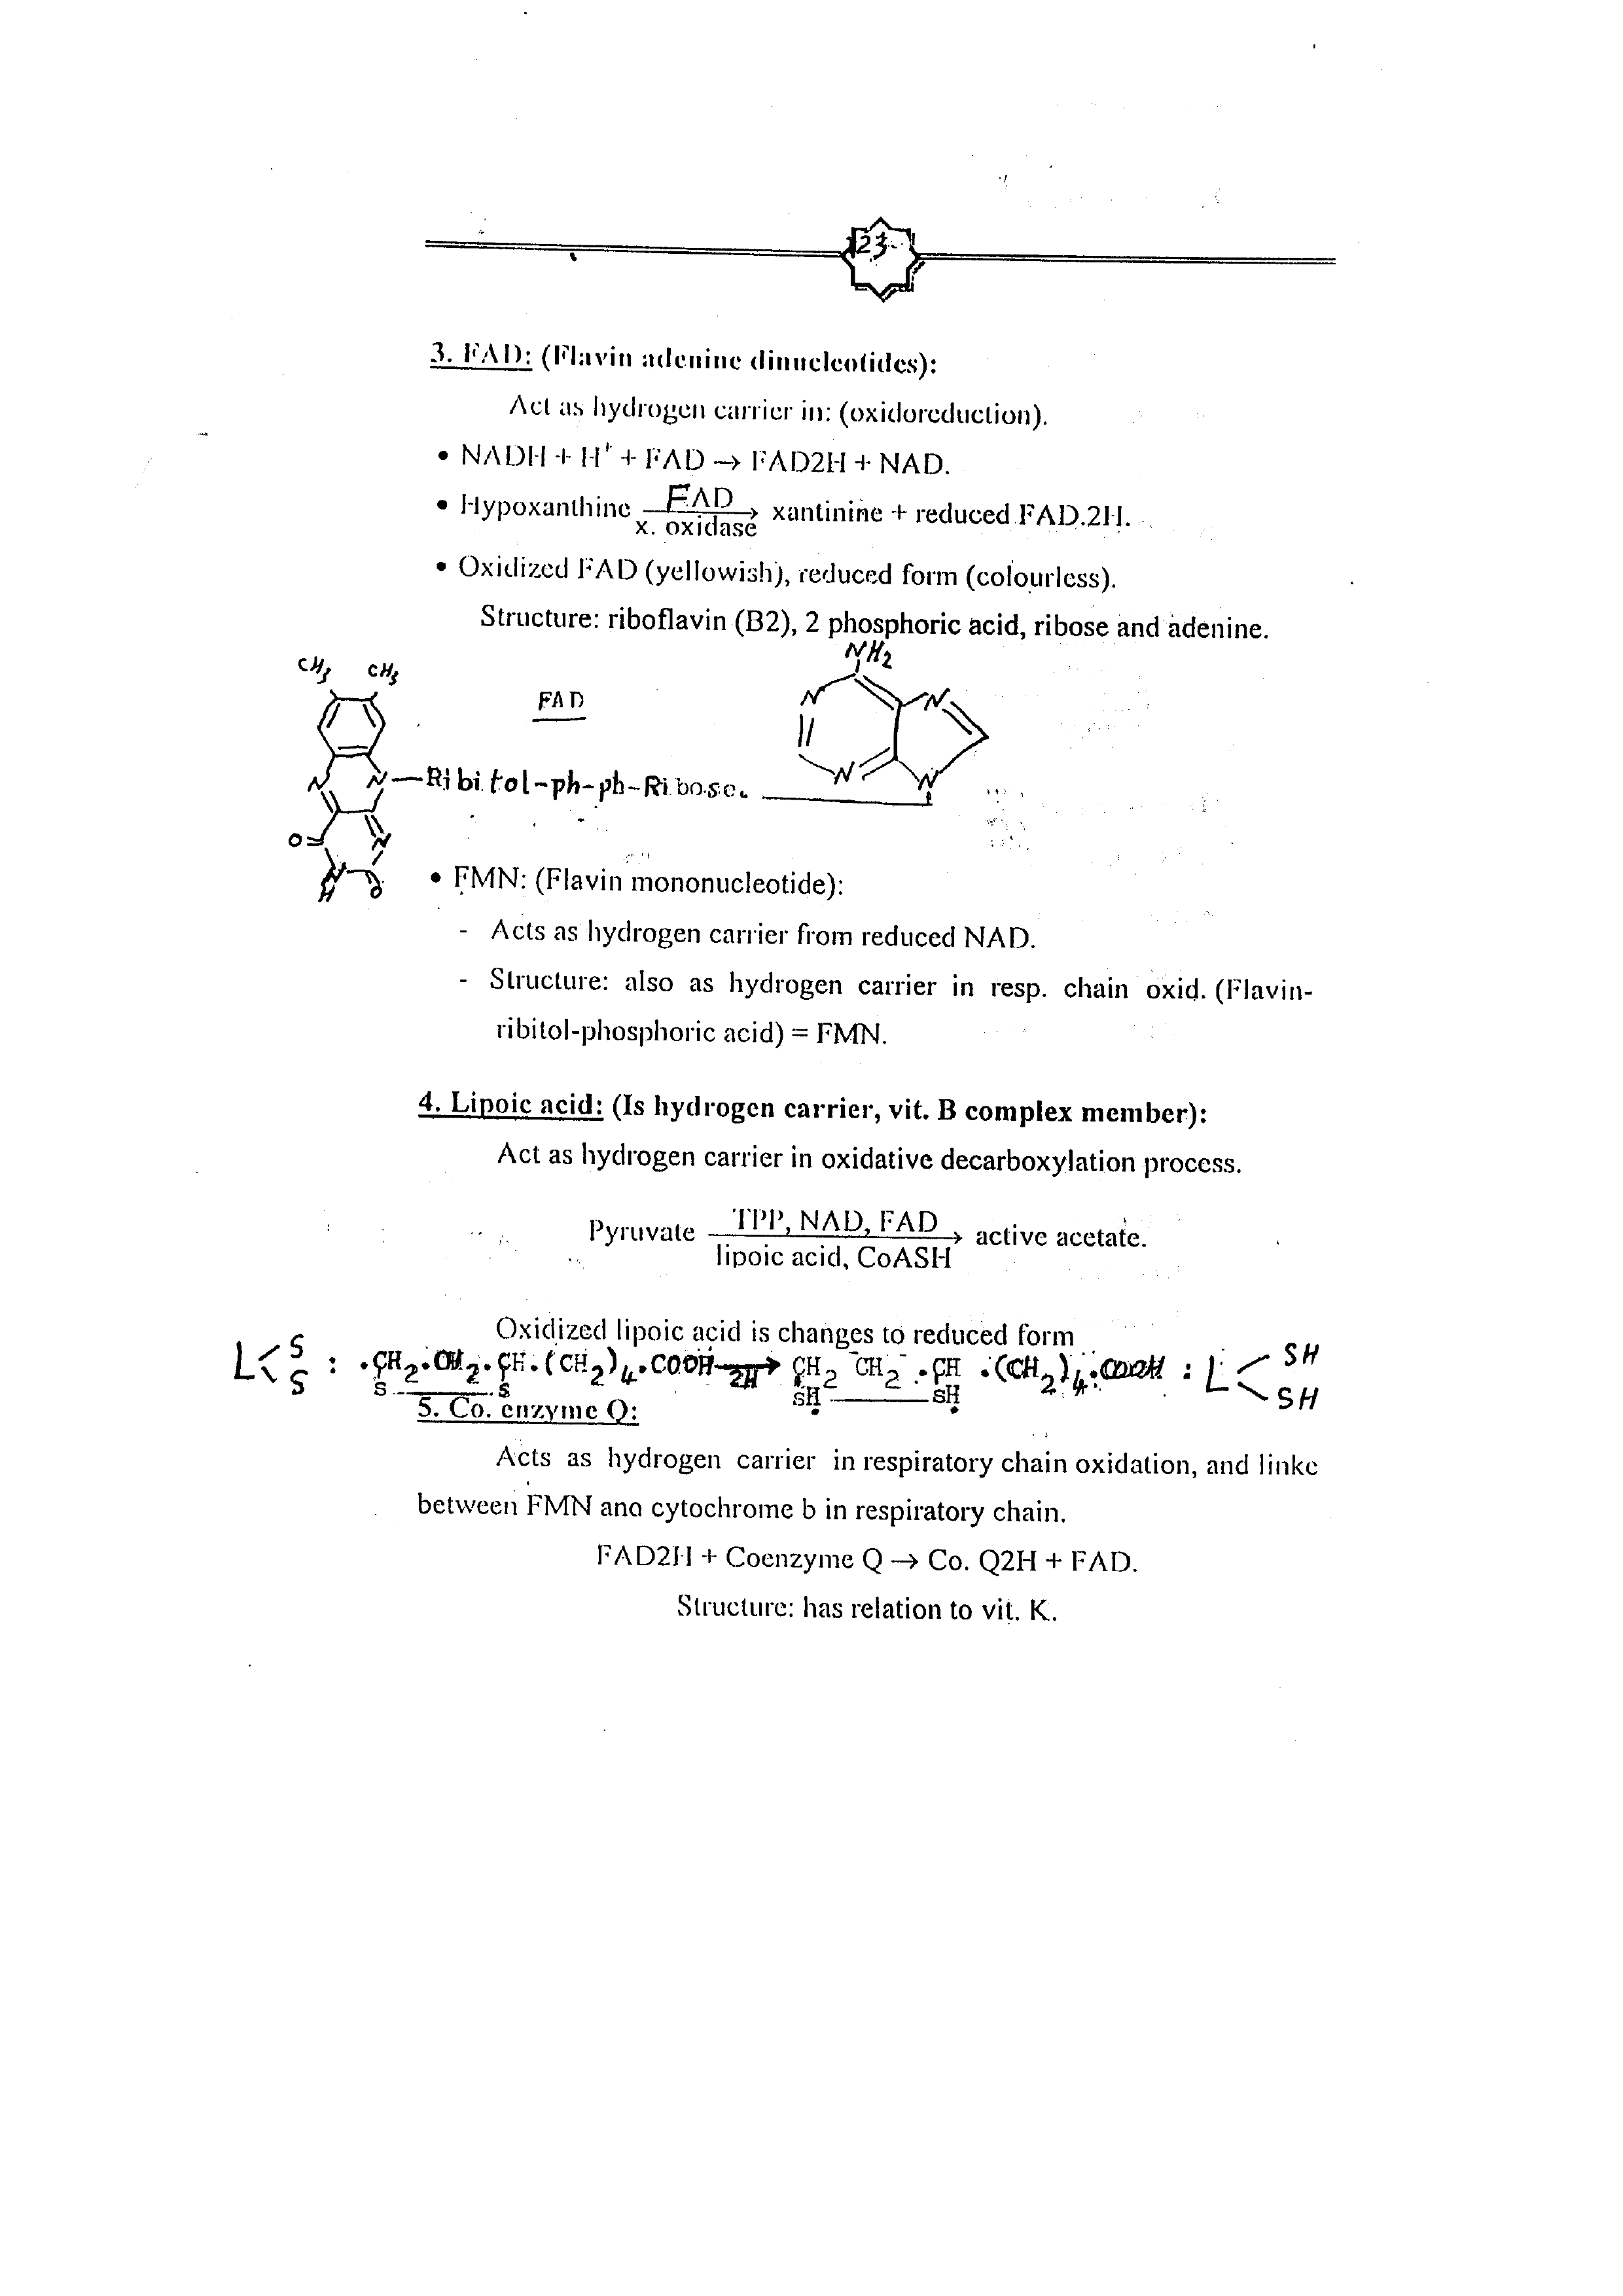 123
3. FAD: (Flavin adenine dinucleotides):
Act as hydrogen carrier in: (oxidoreduction).
• NADH + H⁺ + FAD → FAD2H + NAD.
• Hypoxanthine FAD → x. oxidase xantinine + reduced FAD.2H.
• Oxidized FAD (yellowish), reduced form (colourless).
Structure: riboflavin (B2), 2 phosphoric acid, ribose and adenine.
CH₃ CH₃
FAD
NH₂
N N
N N—Ribitol-ph-ph-Ribose. N N
O N
N
H O
• FMN: (Flavin mononucleotide):
- Acts as hydrogen carrier from reduced NAD.
- Structure: also as hydrogen carrier in resp. chain oxid. (Flavin-
ribitol-phosphoric acid) = FMN.
4. Lipoic acid: (Is hydrogen carrier, vit. B complex member):
Act as hydrogen carrier in oxidative decarboxylation process.
Pyruvate TPP, NAD, FAD → lipoic acid, CoASH active acetate.
Oxidized lipoic acid is changes to reduced form
L< S S : .CH₂.CH₂.CH.(CH₂)₄.COOH 2H → CH₂ CH₂ .CH .(CH₂)₄.COOH : L< SH SH
S S SH SH
5. Co. enzyme Q:
Acts as hydrogen carrier in respiratory chain oxidation, and linke
between FMN and cytochrome b in respiratory chain.
FAD2H + Coenzyme Q → Co. Q2H + FAD.
Structure: has relation to vit. K.